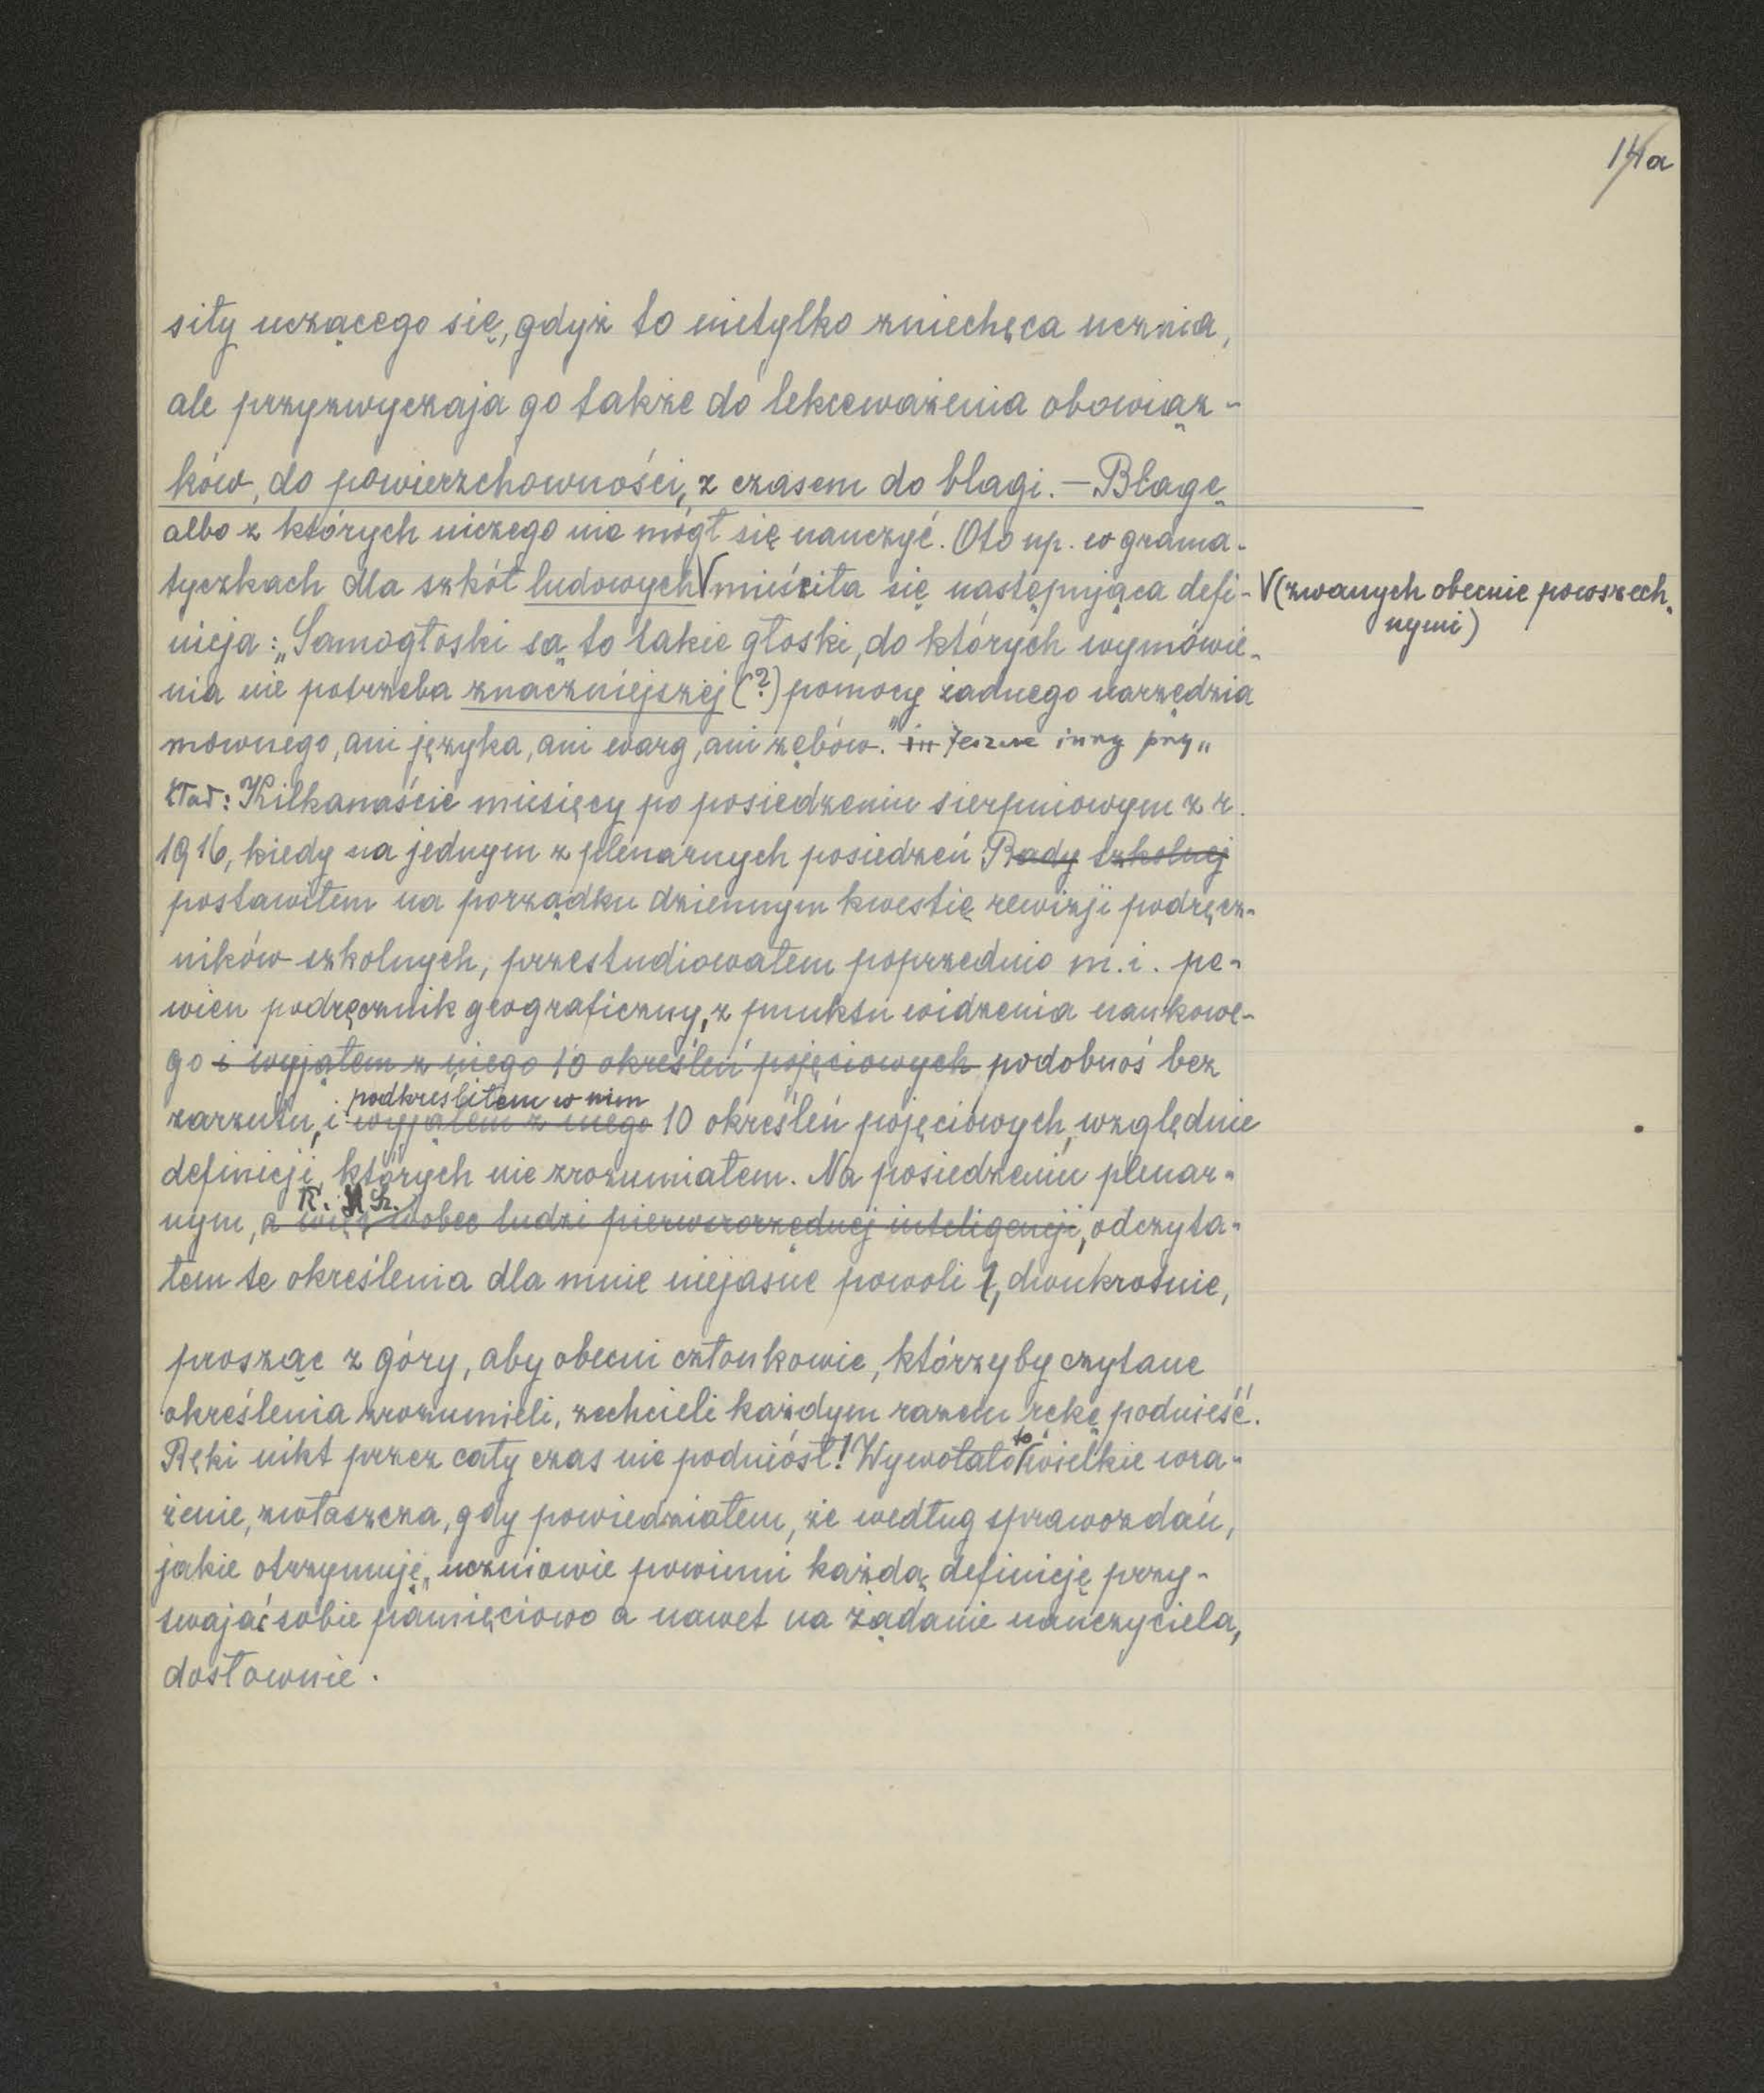 14a
siły uczącego się, gdyż to nietylko zniechęca ucznia,
ale przyzwyczaja go także do lekceważenia obowiąz-
ków, do powierzchowności, z czasem do blagi. — Blagę
albo z których niczego nie mógł się nauczyć. Oto np. w grama-
tyczkach dla szkół ludowych V mieściła się następująca defi-
V (zwanych obecnie powszech-
nymi)
nicja: „Samogłoski są to takie głoski, do których wymówie-
nia nie potrzeba znaczniejszej (?) pomocy żadnego narzędzia
mownego, ani języka, ani warg, ani zębów." in Jeszcze inny przy„
kład: Kilkanaście miesięcy po posiedzeniu sierpniowym z r.
1916, kiedy na jednym z plenarnych posiedzeń Rady szkolnej
postawiłem na porządku dziennym kwestię rewizji podręcz-
ników szkolnych, przestudiowałem poprzednio m.i. pe-
wien podręcznik geograficzny, z punktu widzenia naukowe-
go i wyjąłem z niego 10 określeń pojęciowych podobnoś bez
podkreśliłem w nim
zarzutu, i wyjąłem z niego 10 określeń pojęciowych, względnie
definicji, których nie zrozumiałem. Na posiedzeniu plenar-
R. Sz.
nym, a więc wobec ludzi pierwszorzędnej inteligencji, odczyta-
łem te określenia dla mnie niejasne powoli, dwukrotnie,
prosząc z góry, aby obecni członkowie, którzyby czytane
określenia zrozumieli, zechcieli każdym razem rękę podnieść.
to
Ręki nikt przez cały czas nie podniósł! Wywołało wielkie wra-
żenie, zwłaszcza, gdy powiedziałem, że według sprawozdań,
jakie otrzymuję, uczniowie powinni każdą definicję przy-
swajać sobie pamięciowo a nawet na żądanie nauczyciela,
dosłownie.